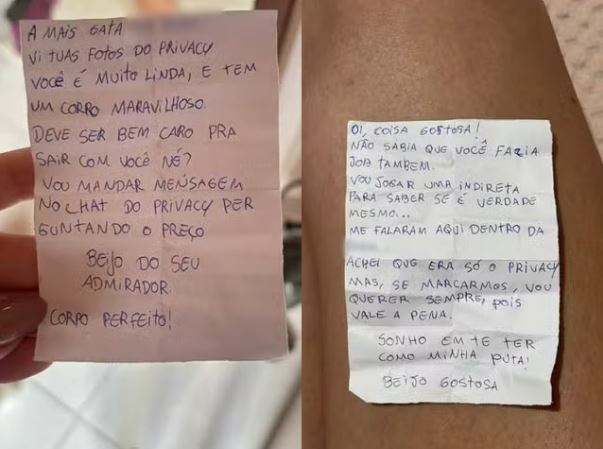 A MAIS GATA
VI TUAS FOTOS DO PRIVACY
VOCÊ É MUITO LINDA, E TEM
UM CORPO MARAVILHOSO.
DEVE SER BEM CARO PRA
SAIR COM VOCÊ NÉ?
VOU MANDAR MENSAGEM
NO CHAT DO PRIVACY PER
GUNTANDO O PREÇO
BEIJO DO SEU
ADMIRADOR.
CORPO PERFEITO!
OI, COISA GOSTOSA!
NÃO SABIA QUE VOCÊ FAZIA
JOB TAMBEM.
VOU JOGAR UMA INDIRETA
PARA SABER SE É VERDADE
MESMO...
ME FALARAM AQUI DENTRO DA
ACHEI QUE ERA SÓ O PRIVACY
MAS, SE MARCARMOS, VOU
QUERER SEMPRE, POIS
VALE A PENA.
SONHO EM TE TER
COMO MINHA PUTA!
BEIJO GOSTOSA